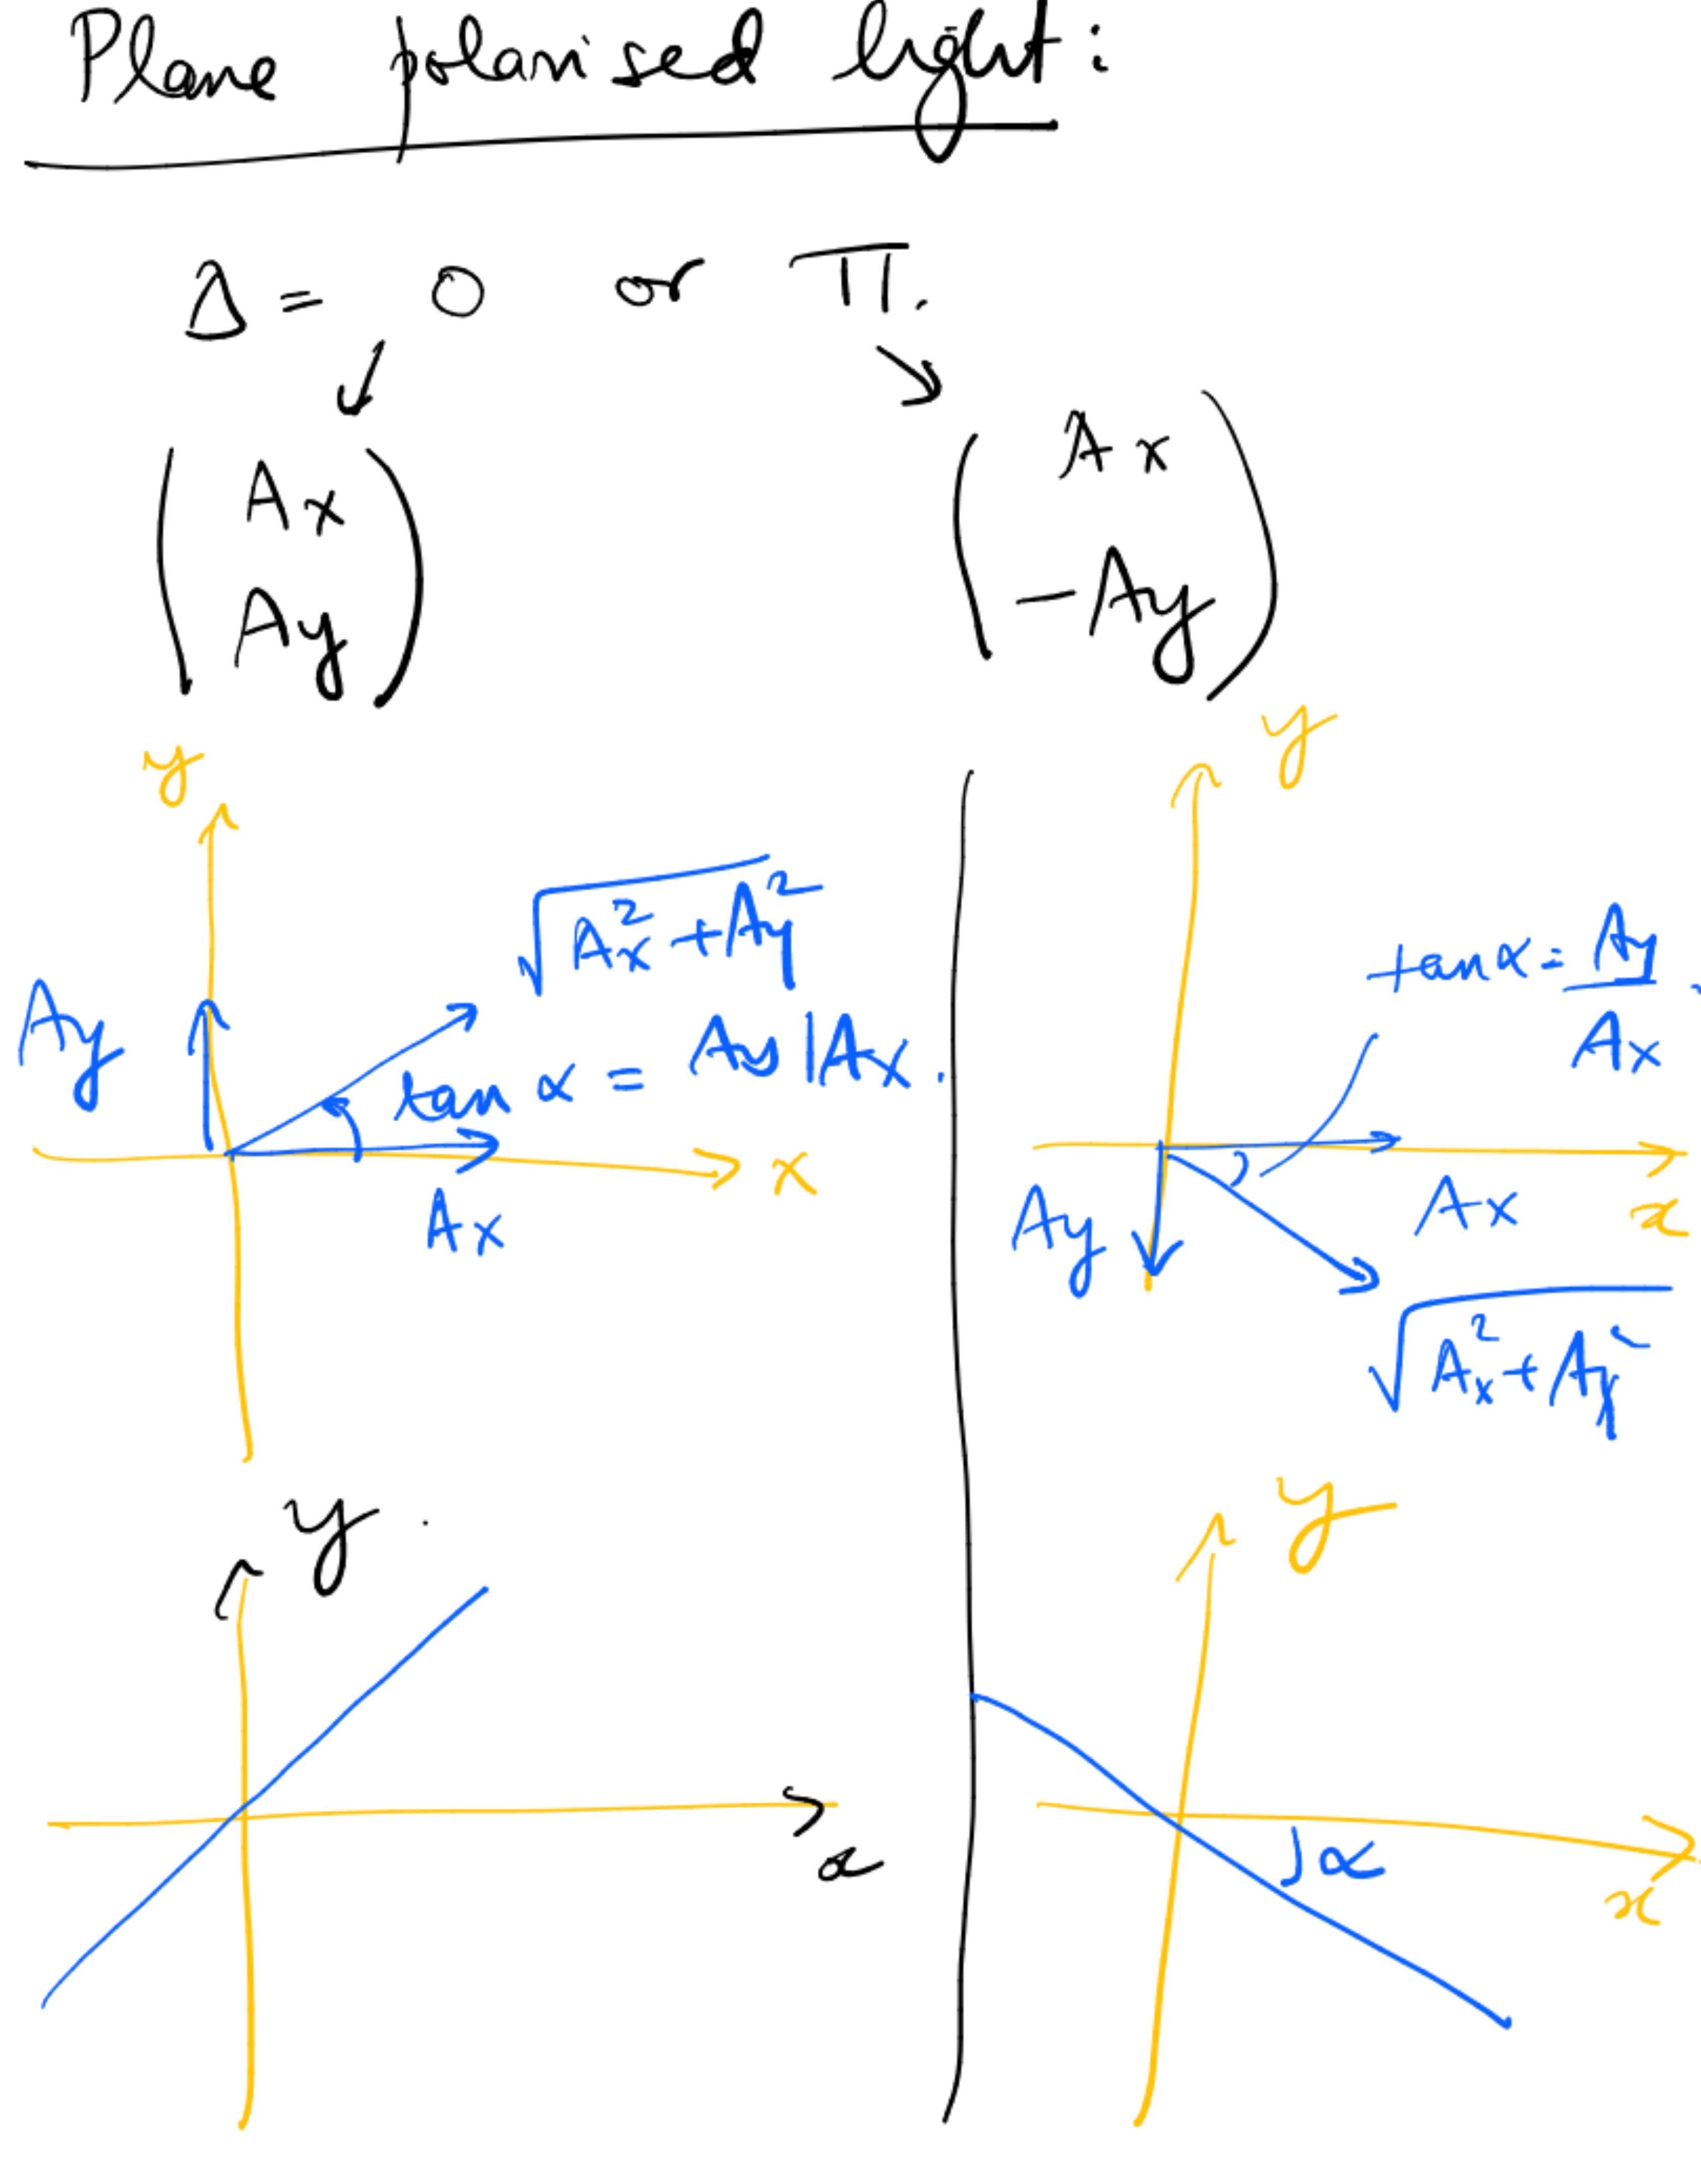 Plane polarised light:
Δ = 0 or π.
↙ ↘
( Ax
Ay )
( Ax
-Ay )
y
√(Ax² + Ay²)
Ay
tan α = Ay | Ax.
x
Ax
y
tan α = Ay / Ax.
Ay
Ax
x
√(Ax² + Ay²)
y.
x
y
α
x